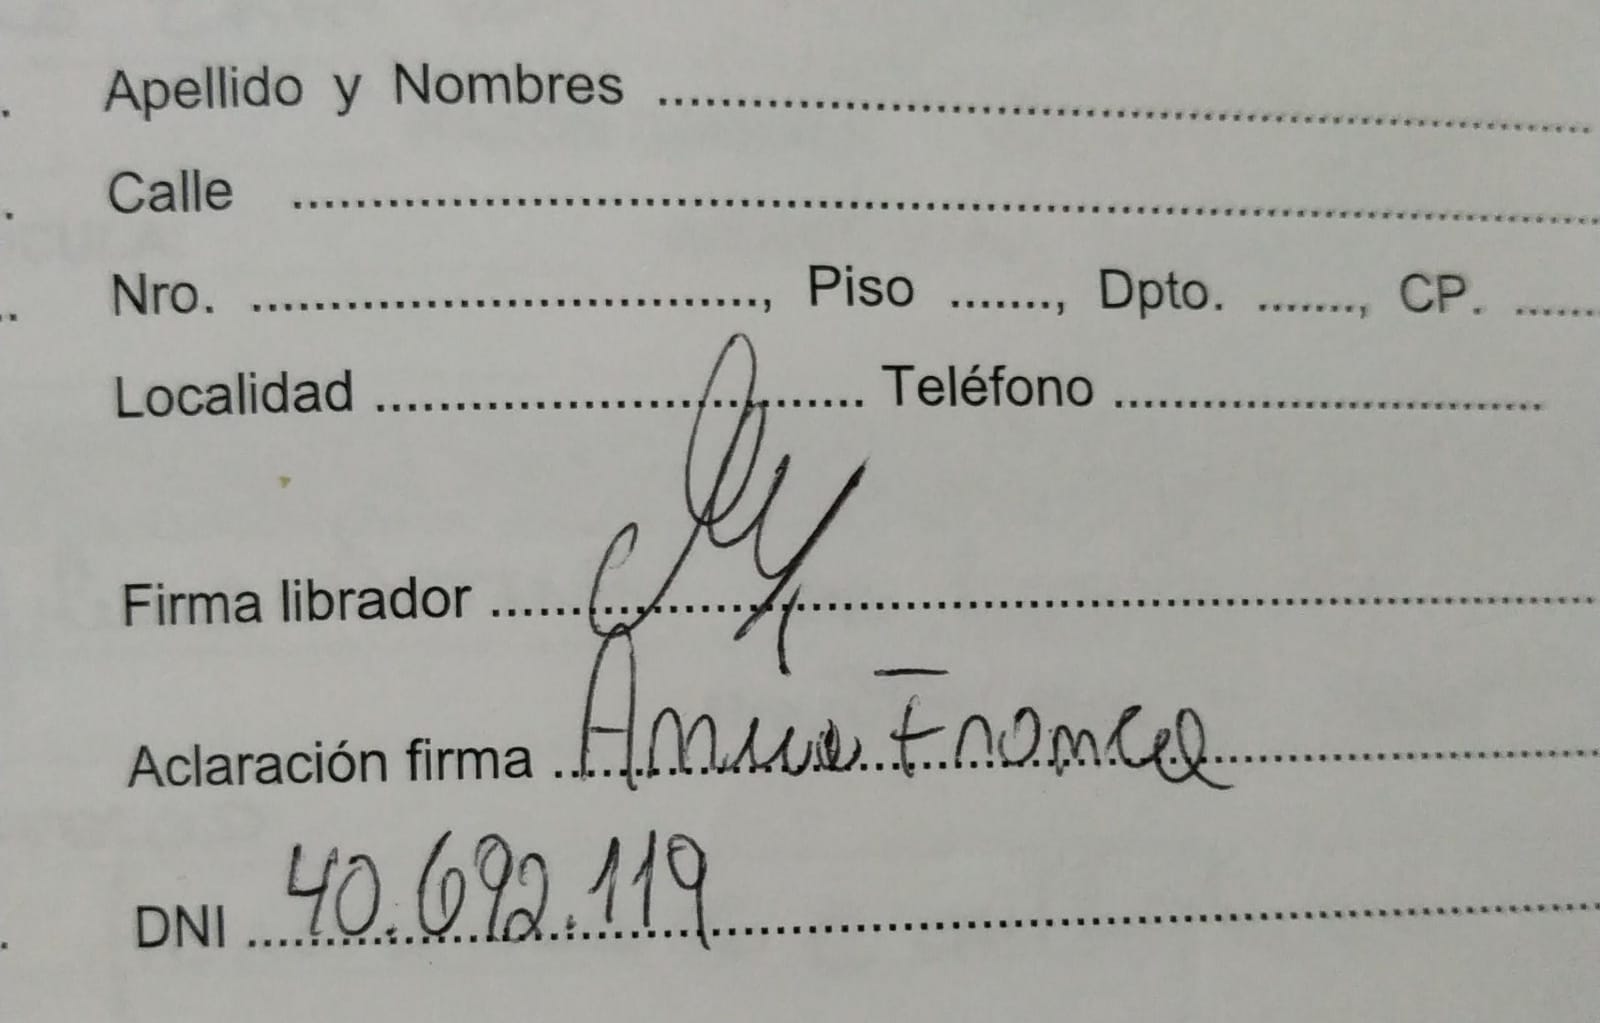 Apellido y Nombres ....................
Calle ....................
Nro. ...................., Piso ......., Dpto. ......., CP. ......
Localidad .................... Teléfono ....................
Firma librador ....................
Aclaración firma ....................
DNI 40.692.119